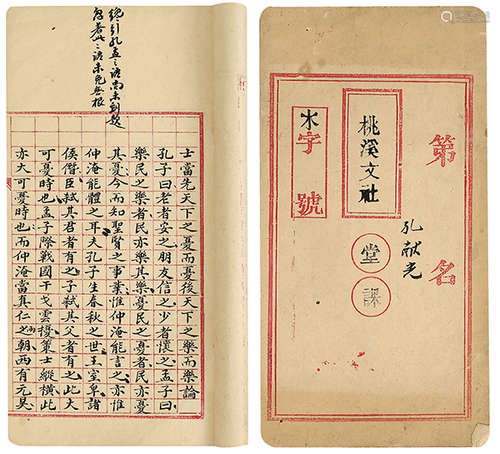 士當先天下之憂而憂後天下之樂而樂論
孔子曰老者安之朋友信之少者懷之孟子曰
樂民之樂者民亦樂其樂憂民之憂者民亦憂
其憂今而知聖賢之事業惟仲淹能言之亦惟
仲淹能體之耳夫孔子生春秋之世王室卑諸
侯僭臣弑其君者有之子弑其父者有之此大
可憂時也孟子際戰國干戈雲擾策士縱橫此
亦大可憂時也而仲淹當真仁之朝西有元昊
第 名
孔献光
桃溪文社
堂課
木字號